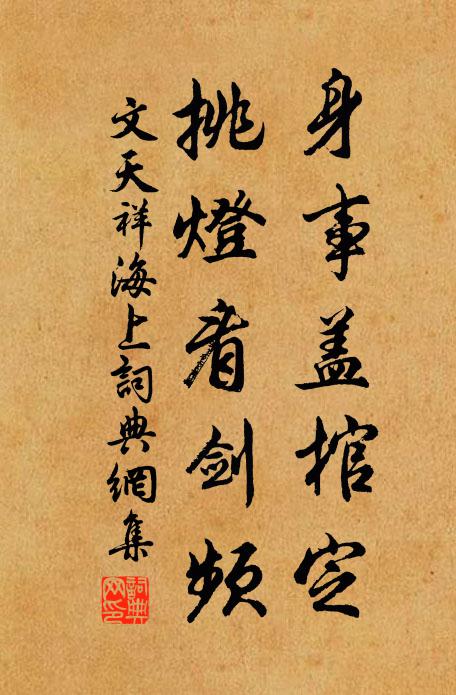 身事盖棺定
挑燈看劍頻
文天祥海上詞典網集
詞典网印